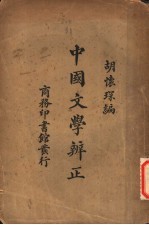 胡懷琛編
中國文學辨正
商務印書館發行